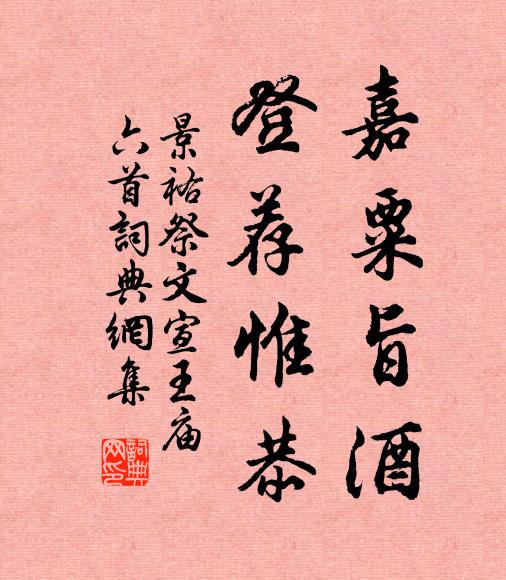 嘉粟旨酒
登荐惟恭
景祐祭文宣王庙
六首詞典網集
詞典網印